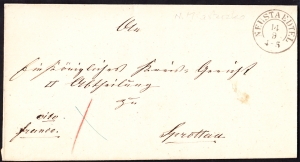 NEUSTAEDTEL
14
An
Ein Königliches Kreis Gericht
II Abtheilung
zu
Sprottau
cito
franco.